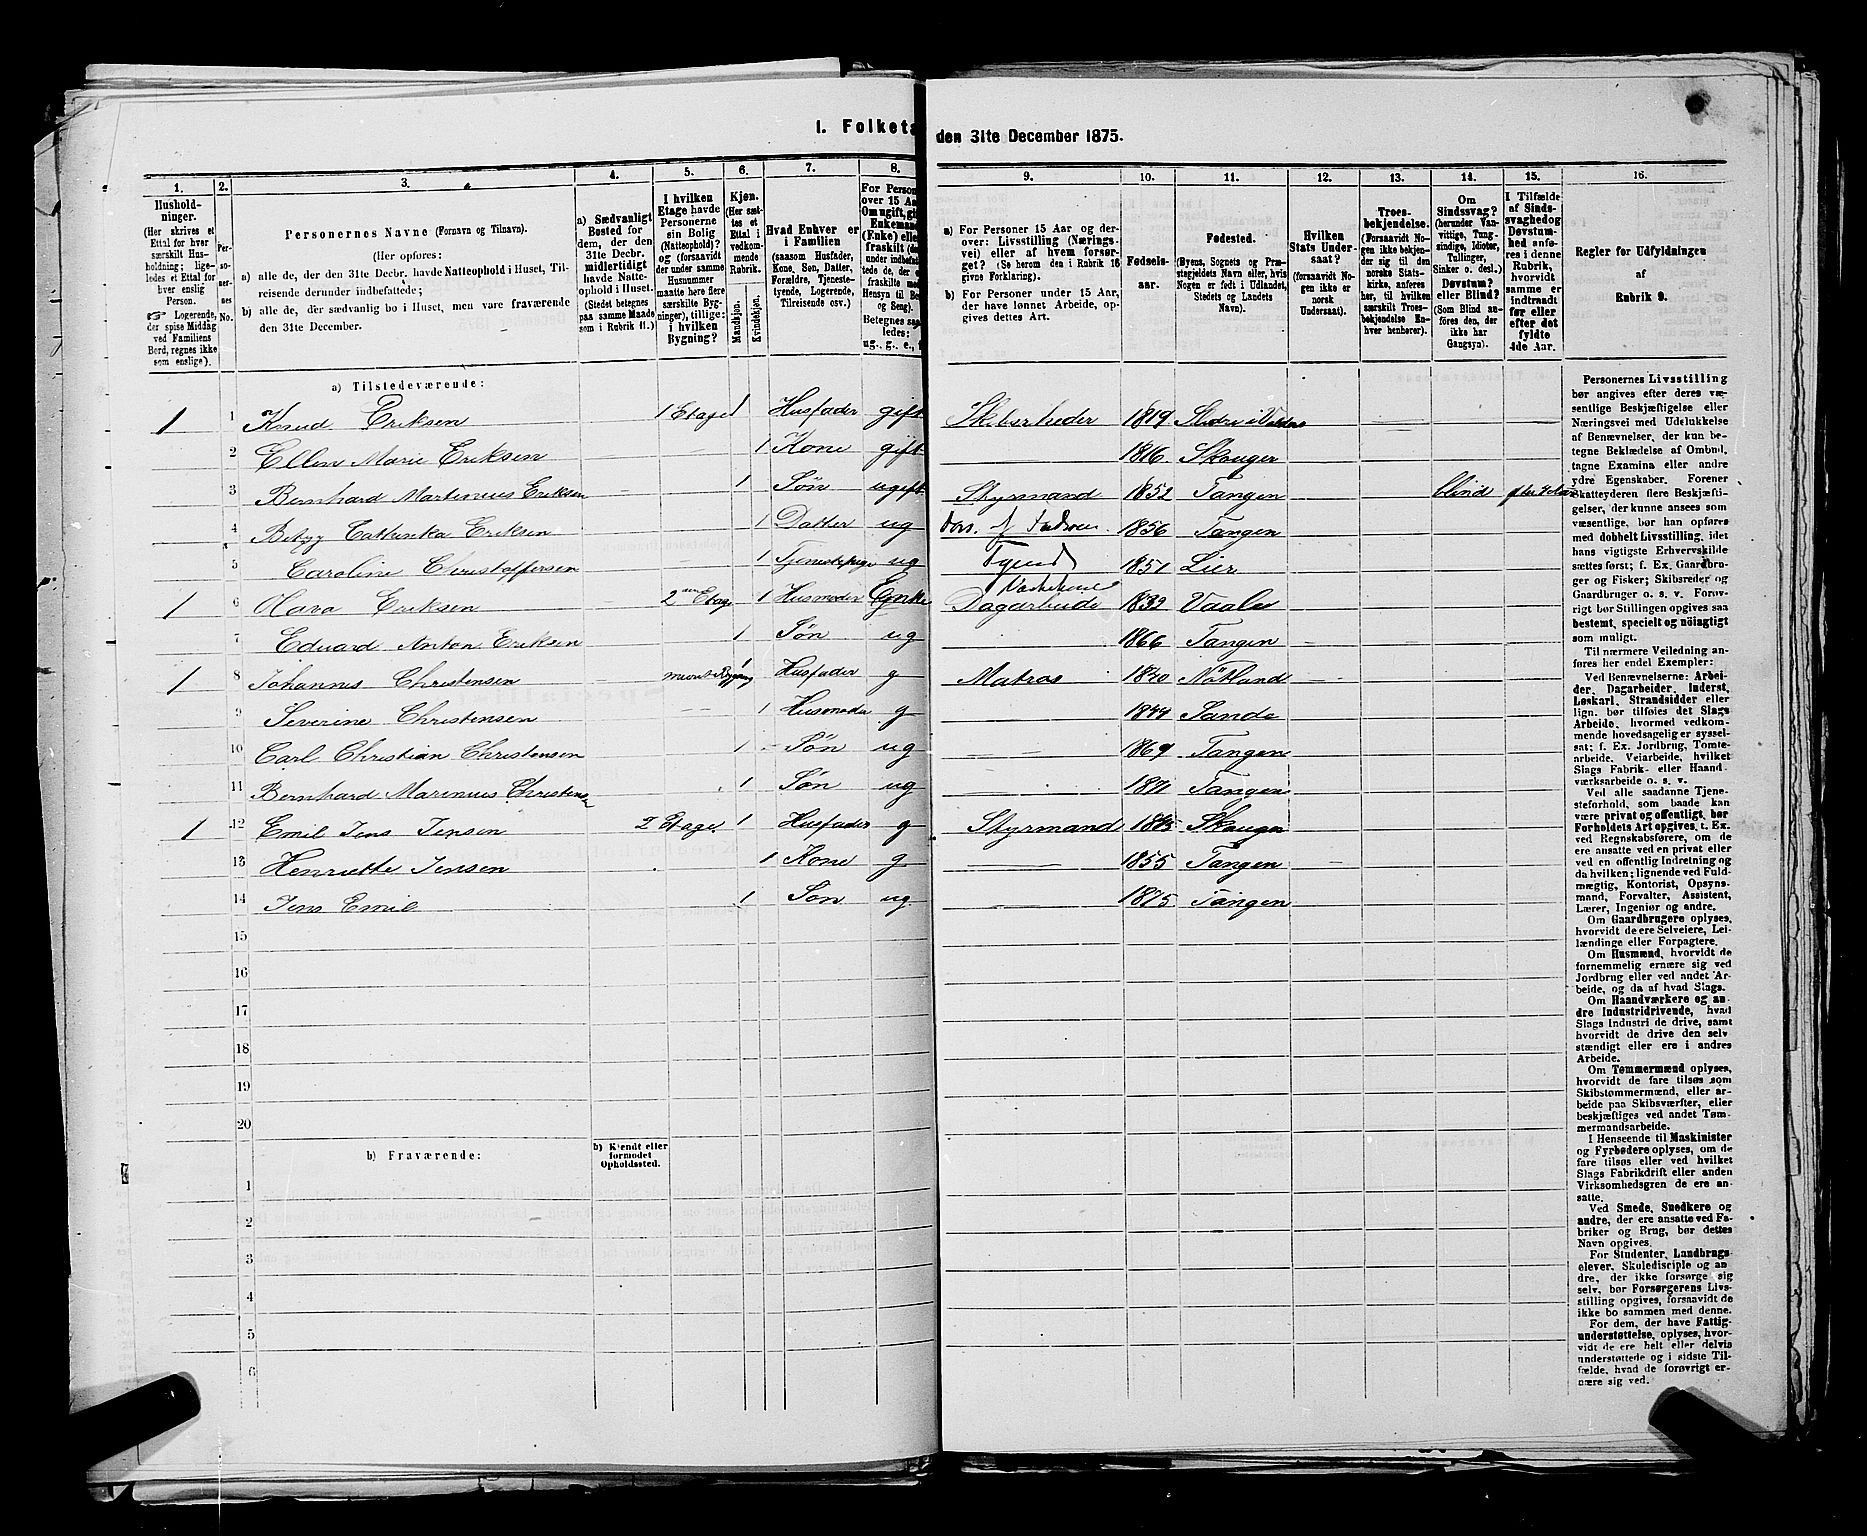 I. Folketa den 31te December 1875.
1. 2. 3. 4. 5. 6. 7. 8. 9. 10. 11. 12. 13. 14. 15. 16.
Hushold-
ninger.
(Her skrives et
Ettal for hver
særskilt Hus-
holdning; lige-
ledes et Ettal for
hver enslig
Person.
☞ Logerende,
der spise Middag
ved Familiens
Bord, regnes ikke
som enslige).
Per-
so-
ner-
nes
No.
Personernes Navne (Fornavn og Tilnavn).
(Her opføres:
a) alle de, der den 31te Decbr. havde Natteophold i Huset, Til-
reisende derunder indbefattede;
b) alle de, der sædvanlig bo i Huset, men vare fraværende
den 31te December.
a) Sædvanligt
Bosted for
dem, der den
31te Decbr.
midlertidigt
havde Natte-
ophold i Huset.
(Stedet betegnes
paa samme Maade
som i Rubrik 11.)
I hvilken
Etage havde
Personerne
sin Bolig
(Natteophold)?
og (forsaavidt
der under samme
Husnummer
maatte høre flere
særskilte Byg-
ninger), tillige:
i hvilken
Bygning?
Kjøn.
(Her sæt-
tes et
Ettal i
vedkom-
mende
Rubrik.
Mandkjøn.
Kvindekjøn.
Hvad Enhver er
i Familien
(saasom Husfader,
Kone, Søn, Datter,
Forældre, Tjeneste-
tyende, Logerende,
Tilreisende osv.)
For Person
over 15 Aar
Om ugift, gi
Enkeman
(Enke) elle
fraskilt (de
under indbefat-
tede de, der e
fraskilte me
Hensyn til Bo
og Seng).
Betegnes saa
ledes:
ug., g., e., f
a) For Personer 15 Aar og der-
over: Livsstilling (Nærings-
vei) eller af hvem forsør-
get? (Se herom den i Rubrik 16
givne Forklaring).
b) For Personer under 15 Aar,
der have lønnet Arbeide, op-
gives dettes Art.
Fødsels-
aar.
Fødested.
(Byens, Sognets og Præ-
stegjeldets Navn eller, hvis
Nogen er født i Udlandet,
Stedets og Landets
Navn).
Hvilken
Stats Under-
saat?
(forsaavidt No-
gen ikke er
norsk
Undersaat).
Troes-
bekjendelse.
(Forsaavidt No-
gen ikke bekjen-
der sig til den
norske Stats-
kirke, anføres
her, til hvilken
særskilt Troes-
bekjendelse En-
hver henhører).
Om
Sindssvag?
(herunder Van-
vittige, Tung-
sindige, Idioter,
Tullinger,
Sinker o. desl.)
Døvstum?
eller Blind?
(Som Blind an-
føres den, der
ikke har
Gangsyn).
I Tilfælde
af Sinds-
svaghed og
Døvstum-
hed anfø-
res i denne
Rubrik,
hvorvidt
samme er
indtraadt
før eller
efter det
fyldte
4de Aar.
Regler for Udfyldningen
af
Rubrik 9.
a) Tilstedeværende:
1 1 Knud Eriksen 1 Etage 1 Husfader gift 1819
2 Ellen Marie Eriksen 1 Kone gift 1816 Skouger
3 Bernhard Martinius Eriksen 1 Søn ugift Styrmand 1852 Tangen blind
4 Cathrinka Eriksen 1 Datter ug fors. af Faderen 1856 Tangen
5 Caroline Christoffersen 1 Tjenestepige ug Tyende 1851 Lier
1 6 Olava Eriksen 2 Etage 1 Husmoder Enke Dagarbeide 1832 Vaale
7 Eduard Anton Eriksen 1 Søn ug 1866 Tangen
1 8 Johannes Christensen 1 Husfader g Matros 1840 Nötland
9 Severine Christensen 1 Husmoder g 1844 Sande
10 Carl Christian Christensen 1 Søn ug 1869 Tangen
11 Bernhard Marinius Christensen 1 Søn ug 1871 Tangen
1 12 Emil Jens Jensen 2 Etage 1 Husfader g Styrmand 1845 Skouger
13 Henriette Jensen 1 Kone g 1855 Tangen
14 Jens Emil 1 Søn ug 1875 Tangen
15
16
17
18
19
20
b) Fraværende:
b) Kjendt eller
formodet
Opholdssted.
1
2
3
4
5
6
Personernes Livsstilling
bør angives efter deres væ-
sentlige Beskjæftigelse eller
Næringsvei med Udelukkelse
af Benævnelser, der kun be-
tegne Beklædelse af Ombud,
tagne Examina eller andre
ydre Egenskaber. Forener
Skatteyderen flere Beskjæfti-
gelser, der kunne ansees som
væsentlige, bør han opføres
med dobbelt Livsstilling, idet
hans vigtigste Erhvervskilde
sættes først; f. Ex. Gaardbru-
ger og Fisker; Skibsreder og
Gaardbruger o. s. v. Forøv-
rigt bør Stillingen opgives saa
bestemt, specielt og nöiagtigt
som muligt.
Til nærmere Veiledning an-
føres her endel Exempler:
Ved Benævnelserne: Arbei-
der, Dagarbeider, Inderst,
Løskarl, Strandsidder eller
lign. bør tilføies det Slags
Arbeide, hvormed vedkom-
mende hovedsagelig er syssel-
sat; f. Ex. Jordbrug, Tomte-
arbeide, Veiarbeide, hvilket
Slags Fabrik- eller Haand-
værksarbeide o. s. v.
Ved alle saadanne Tjene-
steforhold, som baade kan
være privat og offentligt, bør
Forholdets Art opgives, t. Ex.
ved Regnskabsførere, om de
ere ansatte ved en privat eller
ved en offentlig Indretning og
da hvilken; lignende ved Fuld-
mægtig, Kontorist, Opsyns-
mand, Forvalter, Assistent,
Lærer, Ingeniør og andre.
Om Gaardbrugere oplyses,
hvorvidt de ere Selveiere, Lei-
lændinge eller Forpagtere.
Om Husmænd, hvorvidt de
fornemmelig ernære sig ved
Jordbrug eller ved andet Ar-
beide, og da af hvad Slags.
Om Haandværkere og an-
dre Industridrivende, hvad
Slags Industri de drive, samt
hvorvidt de drive den selv-
stændigt eller ere i andres
Arbeide.
Om Tømmermænd oplyses,
hvorvidt de fare tilsøs som
Skibstømmermænd, eller ar-
beide paa Skibsværfter, eller
beskjæftiges ved andet Tøm-
mermandsarbeide.
I Henseende til Maskinister
og Fyrbødere oplyses, om de
fare tilsøs eller ved hvilket
Slags Fabrikdrift eller anden
Virksomhedsgren de ere an-
satte.
Ved Smede, Snedkere og
andre, der ere ansatte ved Fa-
briker og Brug, bør dettes
Navn opgives.
For Studenter, Landbrugs-
elever, Skoledisciple og an-
dre, der ikke forsørge sig
selv, bør Forsørgerens Livs-
stilling opgives, forsaavidt de
ikke bo sammen med denne.
For dem, der have Fattig-
understøttelse, oplyses, hvor-
vidt de ere helt eller delvis
understøttede og i sidste Til-
fælde, hvad de forøvrigt er-
nære sig ved.